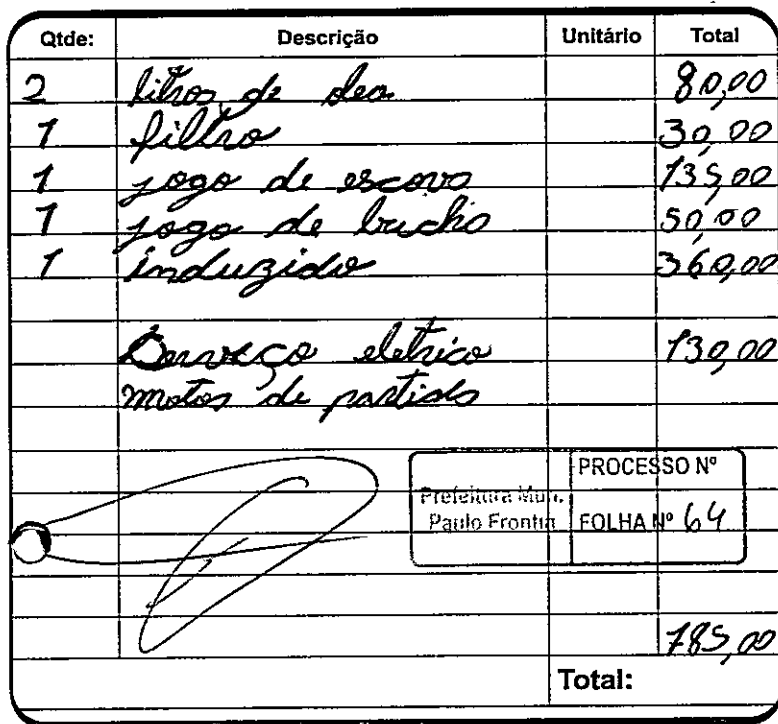 Qtde: Descrição Unitário Total
2 litros de oleo 80,00
1 filtro 30,00
1 jogo de escova 135,00
1 jogo de bucha 50,00
1 induzido 360,00
Serviço eletrico 130,00
motor de partida
PROCESSO Nº
Prefeitura Mun.
Paulo Frontin FOLHA Nº 64
785,00
Total: